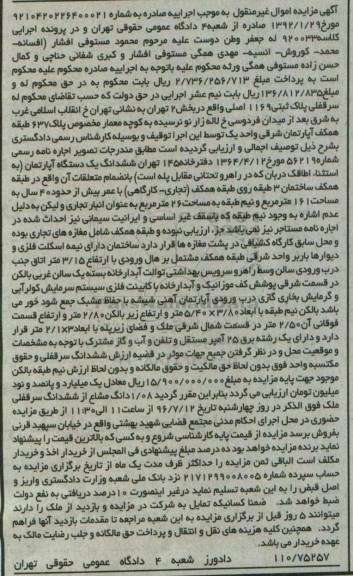 آگهی مزایده اموال غیرمنقول به موجب اجراییه صادره به شماره ۹۲۱۰۴۲۰۲۲۶۴۰۰۰۲۱
مورخ ۱۳۹۲/۱/۲۹ صادره از شعبه ۴ دادگاه عمومی حقوقی تهران و در پرونده اجرایی
کلاسه ۹۲۰۰۳۳ له جعفر وطن دوست علیه مرحوم محمود مستوفی افشار (افسانه-
محمد- کوروش- انسیه- مهدی همگی مستوفی افشار و کبری شفائی حناچی و کمال
حسن زاده مستوفی همگی ورثه محکوم علیه باتوجه به اجراییه صادره محکوم علیه محکوم
است به پرداخت مبلغ ۲/۷۳۶/۲۵۶/۷۱۳ ریال بابت محکوم به در حق محکوم له و
مبلغ ۱۳۶/۸۱۲/۸۳۵ ریال بابت نیم عشر اجرایی در حق دولت که حسب تقاضای محکوم له
سرقفلی پلاک ثبتی ۱۱۶۹ اصلی واقع در بخش ۲ تهران به نشانی تهران خ انقلاب اسلامی غرب
به شرق بعد از میدان فردوسی خ لاله زار نو نرسیده به کوچه معمار مخصوص پلاک ۶۳۷ طبقه
همکف آپارتمان شرقی واحد یک توسط این اجرا توقیف و بوسیله کارشناس رسمی دادگستری
بشرح ذیل توصیف اجمالی و ارزیابی گردیده است مطابق مندرجات تصویر اجاره نامه رسمی
شماره ۵۶۲۱۹ مورخ ۱۳۶۴/۴/۱۲ دفترخانه ۱۴۵ تهران ششدانگ یک دستگاه آپارتمان (به
استثناء اطاقک دربان که در راهرو تحتانی مقابل پله است) بانضمام متعلقات آن واقع در طبقه
همکف ساختمان ۳ طبقه روی طبقه همکف (تجاری-کارگاهی) با عمر بیش از حدود ۴۰ سال به
مساحت ۱۶۱ مترمربع و نیم طبقه به مساحت ۲۶ مترمربع به عنوان انبار تجاری و لیکن به دلیل
عدم اشاره به وجود نیم طبقه که باسقف غیر اساسی و ایرانیت سیمانی نیز احداث شده در
اجاره نامه مستاجر نیز نمی باشد جزء ارزیابی نبوده و طبقه همکف شامل مغازه های تجاری بوده
و محل سابق کارگاه کشبافی در پشت مغازه ها قرار دارد ساختمان دارای نیمه اسکلت فلزی و
دیوارها باربر واحد شرقی طبقه همکف مشتمل بر هال ورودی با ارتفاع ۳/۱۵ متر اتاق جنب
درب ورودی سالن وسط راهرو سرویس بهداشتی توالت آبدارخانه بسته یک سالن غربی بالکن
در قسمت شرقی پوشش کف موزائیک و آبدارخانه با کابینت فلزی سیستم سرمایش کولر آبی
و گرمایش بخاری گازی درب ورودی آپارتمان آهنی شیشه با حفاظ مشبک جمع شود خور می
باشد بالکن نیم طبقه با ابعاد ۳/۸۰×۵/۴۰ متر و ارتفاع زیر بالکن ۲/۸۰ متر و ارتفاع قسمت
فوقانی آن ۲/۵۰ متر در قسمت شمال شرقی ملک و فضای زیرپله با ابعاد ۳×۲/۱ متر قرار
دارد و دارای یک رشته برق ۲۵ آمپر مستقل و تلفن و آب و گاز مشترک با توجه به مشخصات
و موقعیت محل و در نظر گرفتن جمیع جهات موثر در قضیه ارزش ششدانگ سرقفلی و حقوق
مکتسبه واحد فوق بدون لحاظ حق مالکیت و حقوق مالکانه و بدون لحاظ ارزش نیم طبقه بالکن
موجود جهت پایه مزایده به مبلغ ۱۵/۹۰۰/۰۰۰/۰۰۰ ریال معادل یک میلیارد و پانصد و نود
میلیون تومان ارزیابی می گردد بنابراین مقرر گردید ۱/۰۸ دانگ مشاع از ششدانگ سرقفلی
ملک فوق الذکر در روز چهارشنبه تاریخ ۹۶/۷/۱۲ از ساعت ۱۱ الی ۱۱:۳۰ از طریق مزایده
حضوری در محل اجرای احکام مدنی مجتمع قضایی شهید بهشتی واقع در خیابان سپهبد قرنی
بفروش برسد مزایده از قیمت پایه کارشناسی شروع و به کسی که بالاترین قیمت را پیشنهاد
نماید برنده مزایده خواهد بود ده درصد مبلغ پیشنهادی فی المجلس از خریدار اخذ و خریدار
مکلف است الباقی ثمن مزایده را حداکثر ظرف مدت یک ماه از تاریخ برگزاری مزایده به
حساب سپرده شماره ۲۱۷۱۲۹۹۰۰۸۰۰۵ نزد بانک ملی شعبه وزارت دادگستری واریز و
اصل قبض را به این شعبه تسلیم نماید درغیر اینصورت ۱۰ درصد دریافتی به نفع دولت
ضبط خواهد شد. ضمنا کسانیکه تمایل به شرکت در مزایده و بازدید از ملک را دارند
میتوانند ۵ روز قبل از برگزاری مزایده به این شعبه مراجعه تا مقدمات بازدید آنها فراهم
گردد. همچنین کلیه هزینه های نقل و انتقال و پرداخت حق مالکانه و جلب رضایت مالک به
عهده خریدار می باشد.
۱۱۰/۷۵۲۵۷ دادورز شعبه ۴ دادگاه عمومی حقوقی تهران